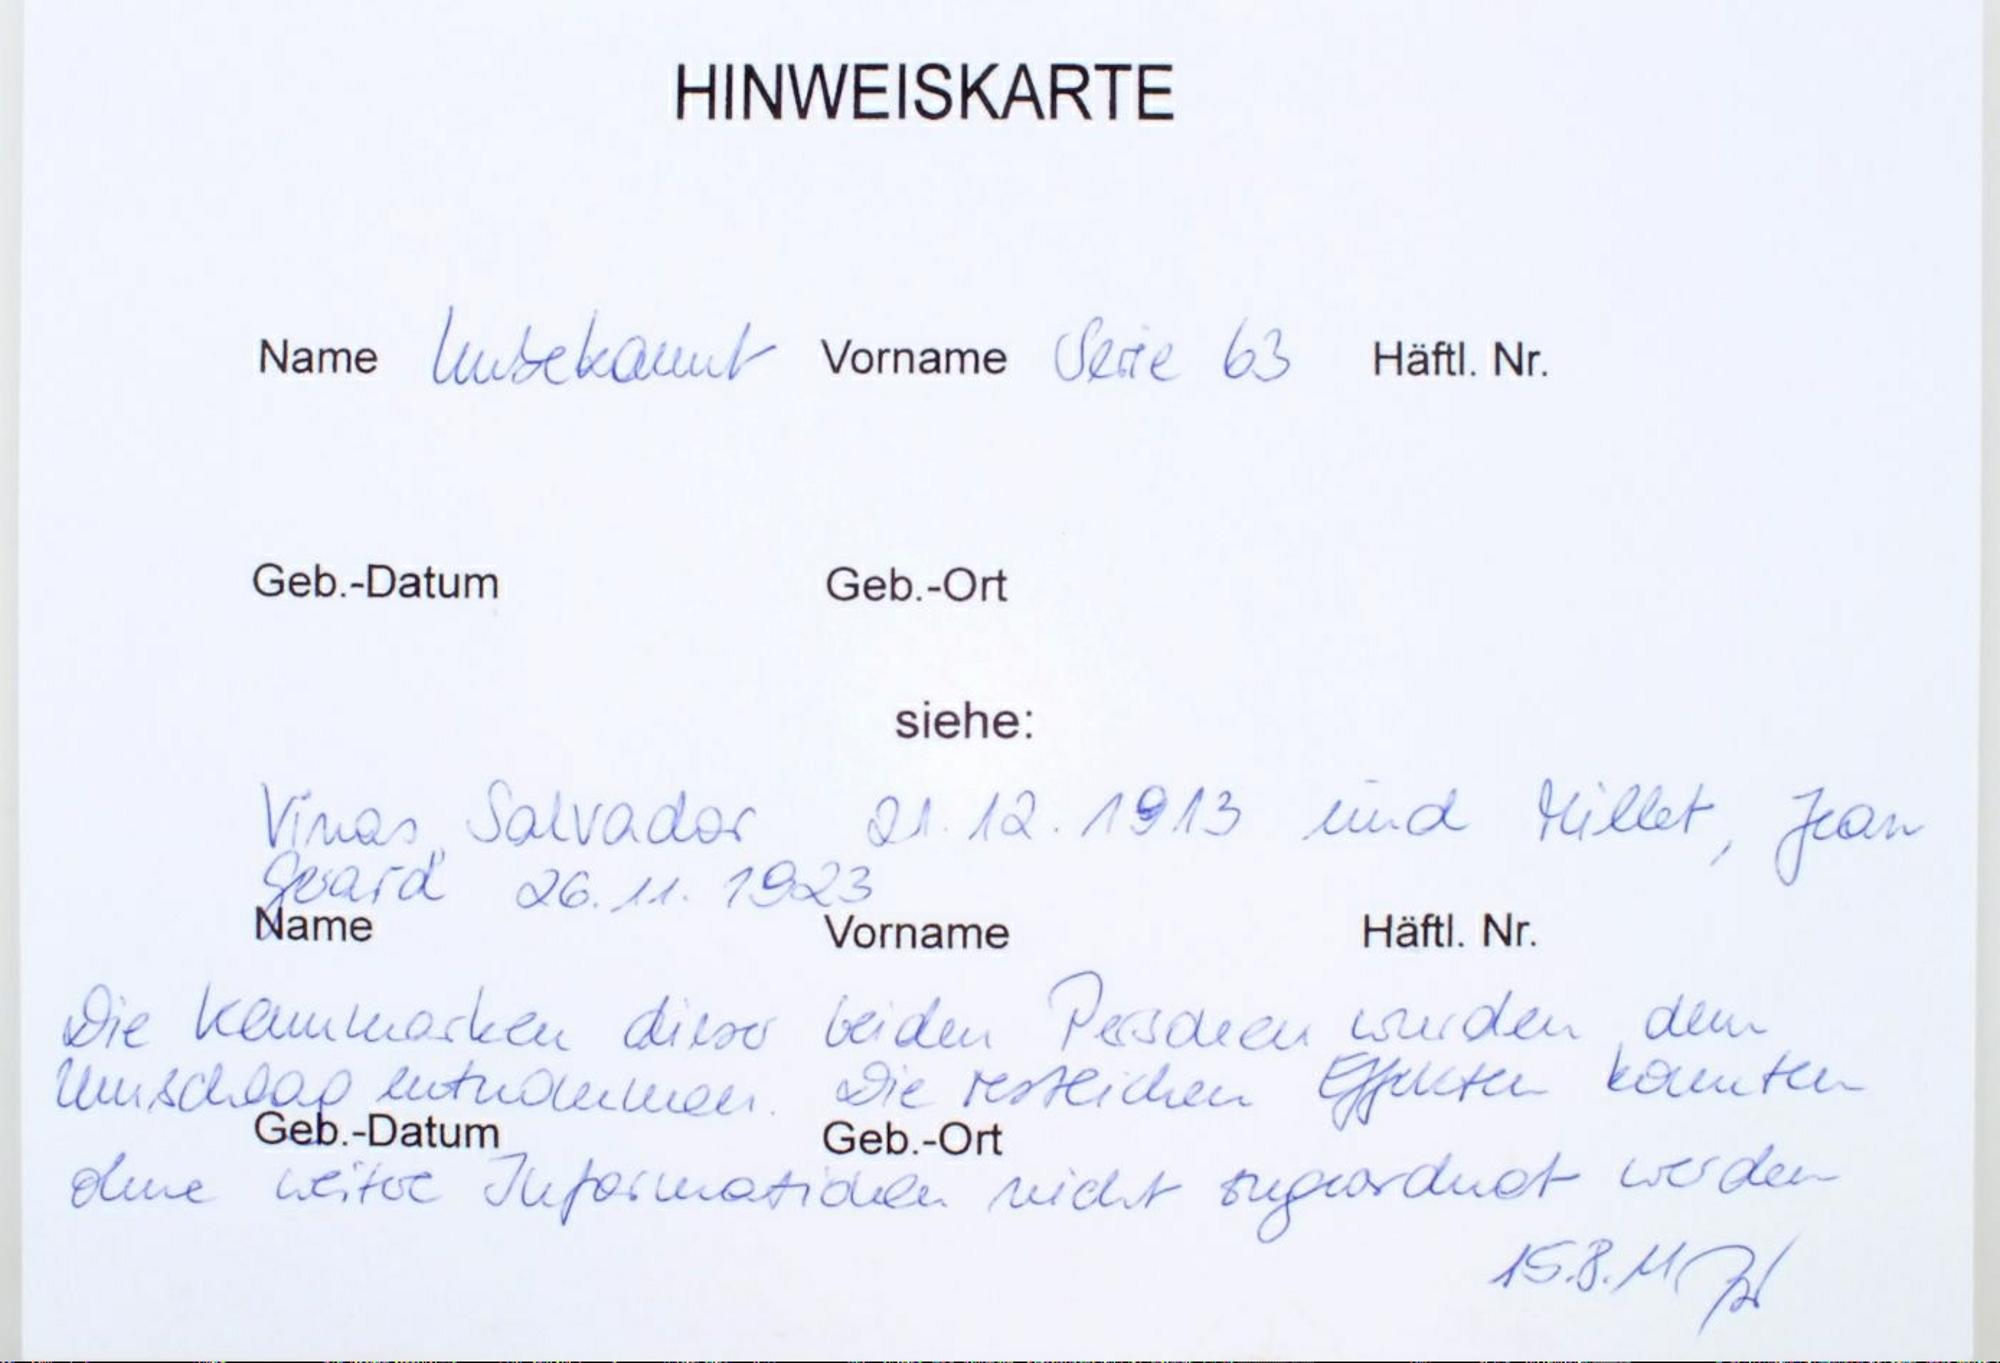 HINWEISKARTE
Name Unbekannt Vorname Serie 63 Häftl. Nr.
Geb.-Datum Geb.-Ort
siehe:
Vinas, Salvador 21.12.1913 und Millet, Jean
Gerard 26.11.1923
Name Vorname Häftl. Nr.
Die Kennmarken dieser beiden Personen wurden dem
Umschlag entnommen. Die restlichen Effekten konnten
Geb.-Datum Geb.-Ort
ohne weitere Informationen nicht zugeordnet werden
15.8.11